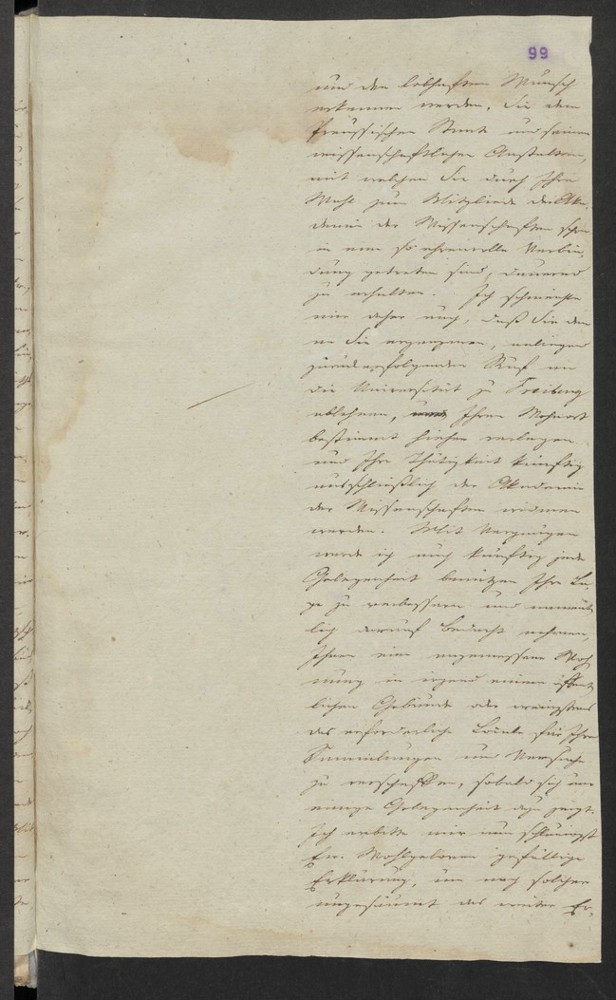 99
und den lebhaften Wunsch
erkennen werden, Sie dem
Preußischen Staate und seinen
wissenschaftlichen Anstalten,
mit welchen Sie durch Ihre
Wahl zum Mitgliede der Aka,
demie der Wissenschaften schon
in eine so ehrenvolle Verbin,
dung getreten sind, dauernd
zu erhalten. Ich schmeichle
mir daher auch, daß Sie den
an Sie ergangenen,
Ruf an
die Universität zu Freiburg
ablehnen, Ihren Wohnort
bestimmt hieher verlegen
und Ihre Thätigkeit künftig
ausschließlich der Akademie
der Wissenschaften widmen
werden. Mit Vergnügen
werde ich auch künftig jede
Gelegenheit benutzen Ihre La,
ge zu verbessern und nament,
lich darauf Bedacht nehmen,
Ihnen eine angemessene Woh
nung in irgend einem öffent
lichen Gebäude oder wenigstens
das erforderliche Locale für Ihre
Sammlungen und Versuche
zu verschaffen, sobald sich nur
einige Gelegenheit dazu zeigt.
Ich erbitte mir nun schleunigst
Ew. Wohlgeboren gefällige
Erklärung, um nach solcher
ungesäumt das weitere Er,